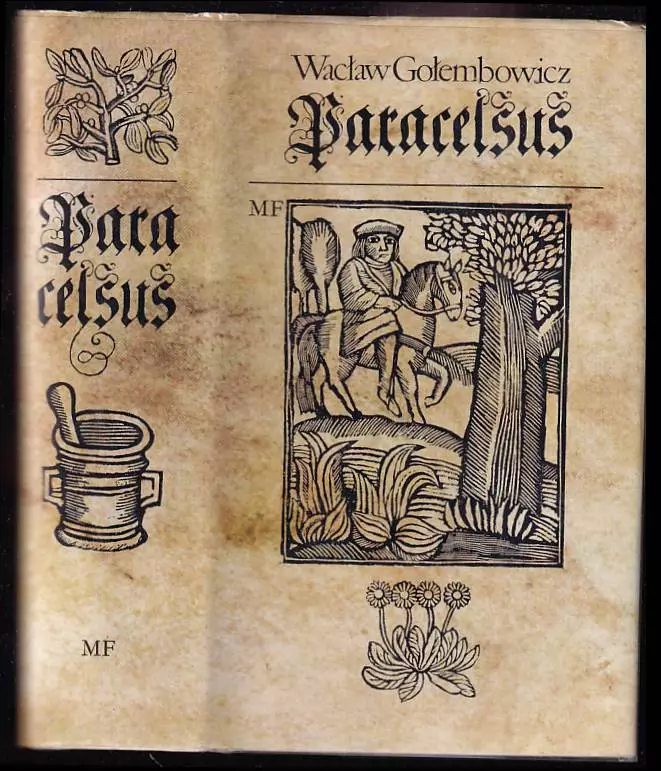 Para
celsus
MF
Wacław Gołembowicz
Paracelsus
MF